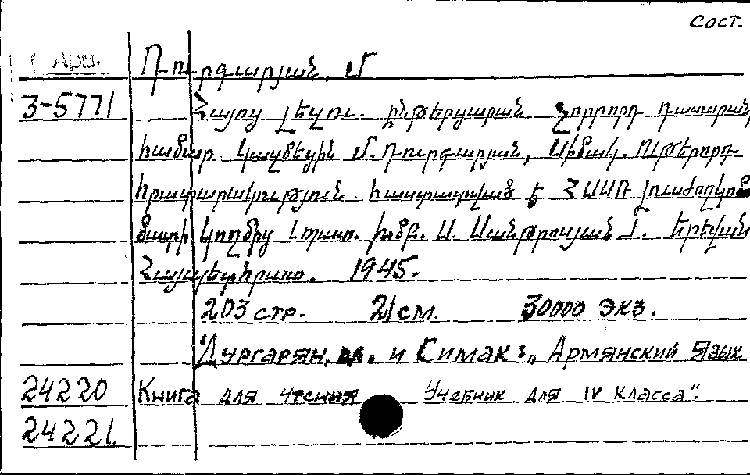 Сост.
1 Арм.
Դուրգարյան, Մ
3-5771 Հայոց լեզու. ընթերցարան չորրորդ դասարան
համար. կազմեցին Մ. Դուրգարյան, Սիմակ. Ութերորդ
հրատարակություն. հաստատված է ՀՍՍՌ լուսժողկոմ
կողմից խմբ. Ս. Մանթրոսյան Երևան
Հայպետհրատ. 1945.
203 стр. 21 см. 30000 экз.
"Дургарян, М. и Симак: „Армянский язык
24220 Книга для чтения Учебник для IV класса".
24221